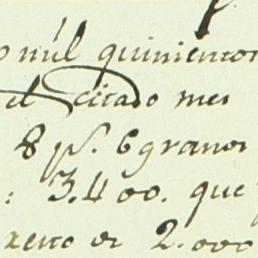 mil quinientos
el citado mes
8 p.s 6 granos
: 3.400. que
2.000